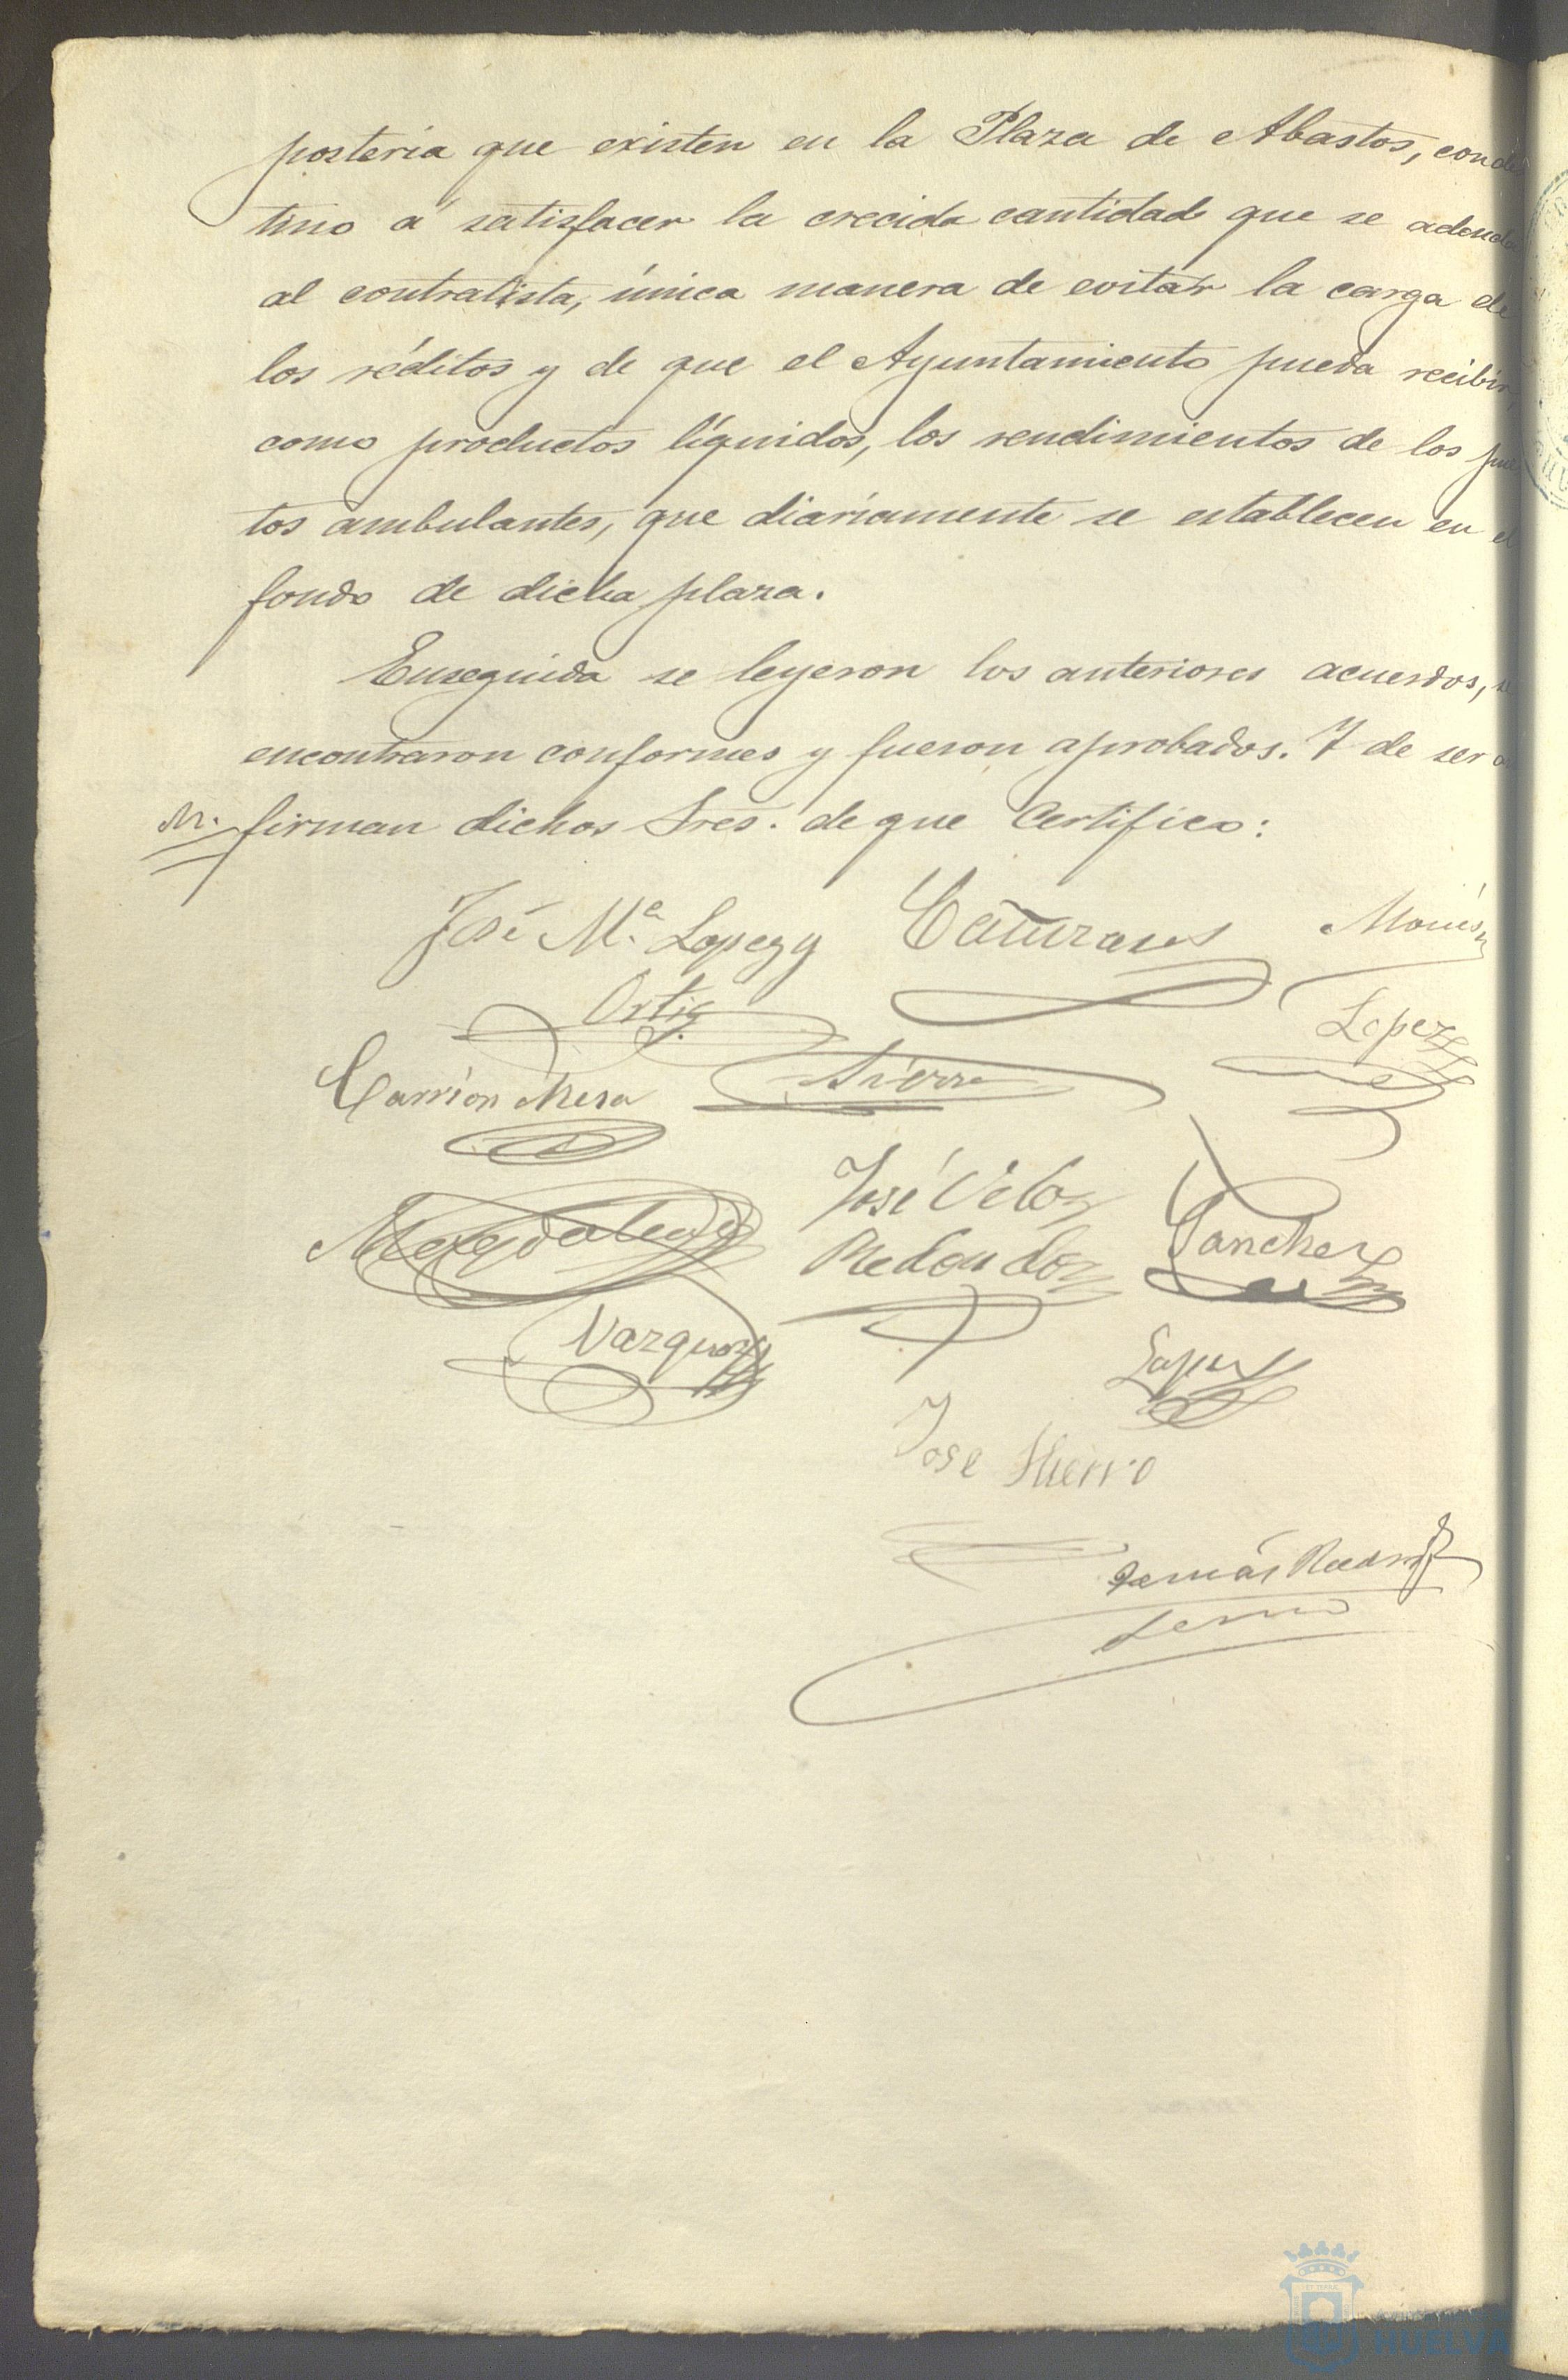 postería que existen en la Plaza de Abastos, con de
tino á satisfacer la crecida cantidad que se adeuda
al contratista, única manera de evitar la carga de
los réditos y de que el Ayuntamiento pueda recibir,
como productos líquidos, los rendimientos de los pue
tos ambulantes, que diariamente se establecen en el
fondo de dicha plaza.
Enseguida se leyeron los anteriores acuerdos, se
encontraron conformes y fueron aprobados. Y de ser a
firman dichos Sres. de que Certifico:
José Mª. Lopez y
Ortiz
Lopez
Carrion Mesa
Sierra
José Veloz
Redondo
Sanchez
Vazquez
Lopez
José Hierro
Tomás
HUELVA